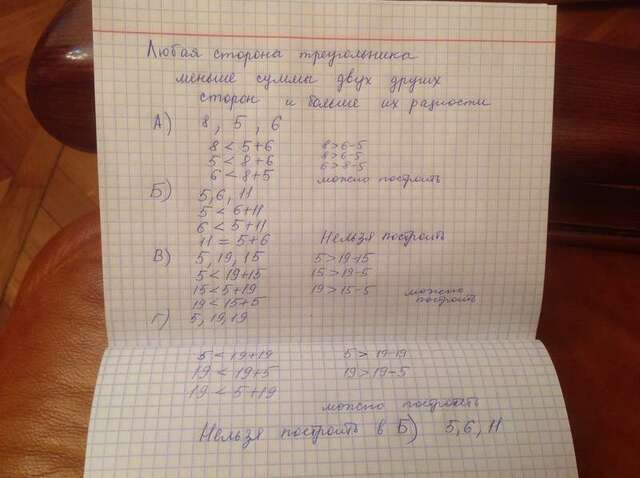 Любая сторона треугольника
меньше суммы двух других
сторон и больше их разности
А) 8, 5, 6
8 < 5+6 8>6-5
5 < 8+6 8>6-5
6 < 8+5 6>8-5
можно построить
Б) 5,6, 11
5 < 6+11
6 < 5+11
11 = 5+6 Нельзя построить
В) 5, 19, 15 5>19-15
5<19+15 15>19-5
15<5+19 19>15-5 можно
19<15+5 построить
Г) 5, 19, 19
5 < 19+19 5> 19-19
19 < 19+5 19>19-5
19 < 5+19
можно построить
Нельзя построить в Б) 5,6, 11